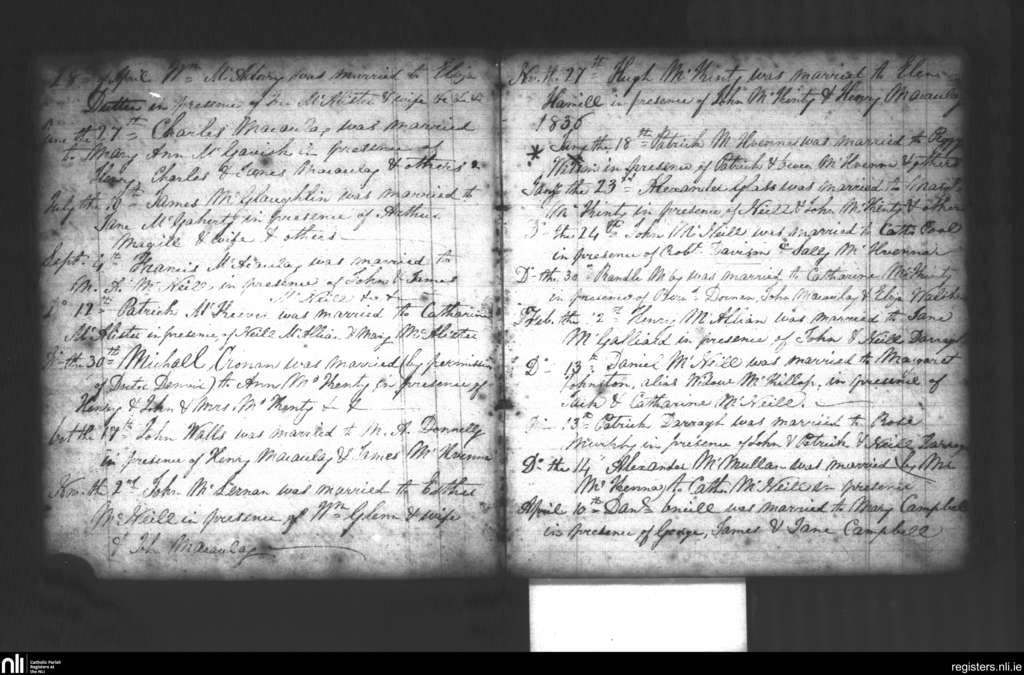 April Wm McAlony was married to Eliza
in presence of McAlister & wife &c &c
June the 27th Charles Macaulay was married
to Mary Ann McGavish in presence of
Henry, Charles & Macaulay & others
July the James McGlaughlin was married to
Jane McGahert in presence of Arthur
Magill & wife & others
Sept. 4th Francis McAcaulay was married to
M. A. McNeill, in presence of John & James
McNeill &c &
Do 12th Patrick McKeever was married to Catharine
McAlister in presence of Neill McAllian & Mary McAlister
Do the 30th Michall Cronan was married (by permission
of Doctor Denvir) to Ann McKenty in presence of
Henry & John & Mrs McKenty & &
Oct the 17th John Watts was married to M. A. Donnelly
in presence of Henry Macaulay & James McIlvenna
Nov. th 2nd John McLernan was married to Esther
McNeill in presence of Wm Glenn & wife
& Joh Macaulay
Nov. th 27th Hugh McKinty was married to Elenor
Hamill in presence of John McKinty & Henry Macaulay
1836
* Jany the 18th Patrick McIlvenna was married to Peggy
in presence of Patrick & McIlvenna & others
Jany the 23rd Alexander Glass was married to Mary
McKinty in presence of Neill & John McKinty & others
Do the 24th John McNeill was married to Cathe Cool
in presence of Robt Davison & Sally McIlvenna
Do the 30th Randle May was married to Catharine McKinty
in presence of Dornan, John Macaulay & Eliza
Feb. the 2nd Henry McAllian was married to Jane
McGalliard in presence of John & Neill Darragh
Do 13th Daniel McNeill was married to Margaret
Johnston, alias Widow McKillop, in presence of
Jack & Catharine McNeill.
Do 13th Patrick Darragh was married to Rose
Murphy in presence of John & Patrick & Neill Darragh
Do the 14 Alexander McMullan was married by Mr
McKenna to Cathe McNeill in presence
April 10th Danl Oneill was married to Mary Campbell
in presence of George, James & Jane Campbell
nli
Catholic Parish
Registers at
the NLI
registers.nli.ie